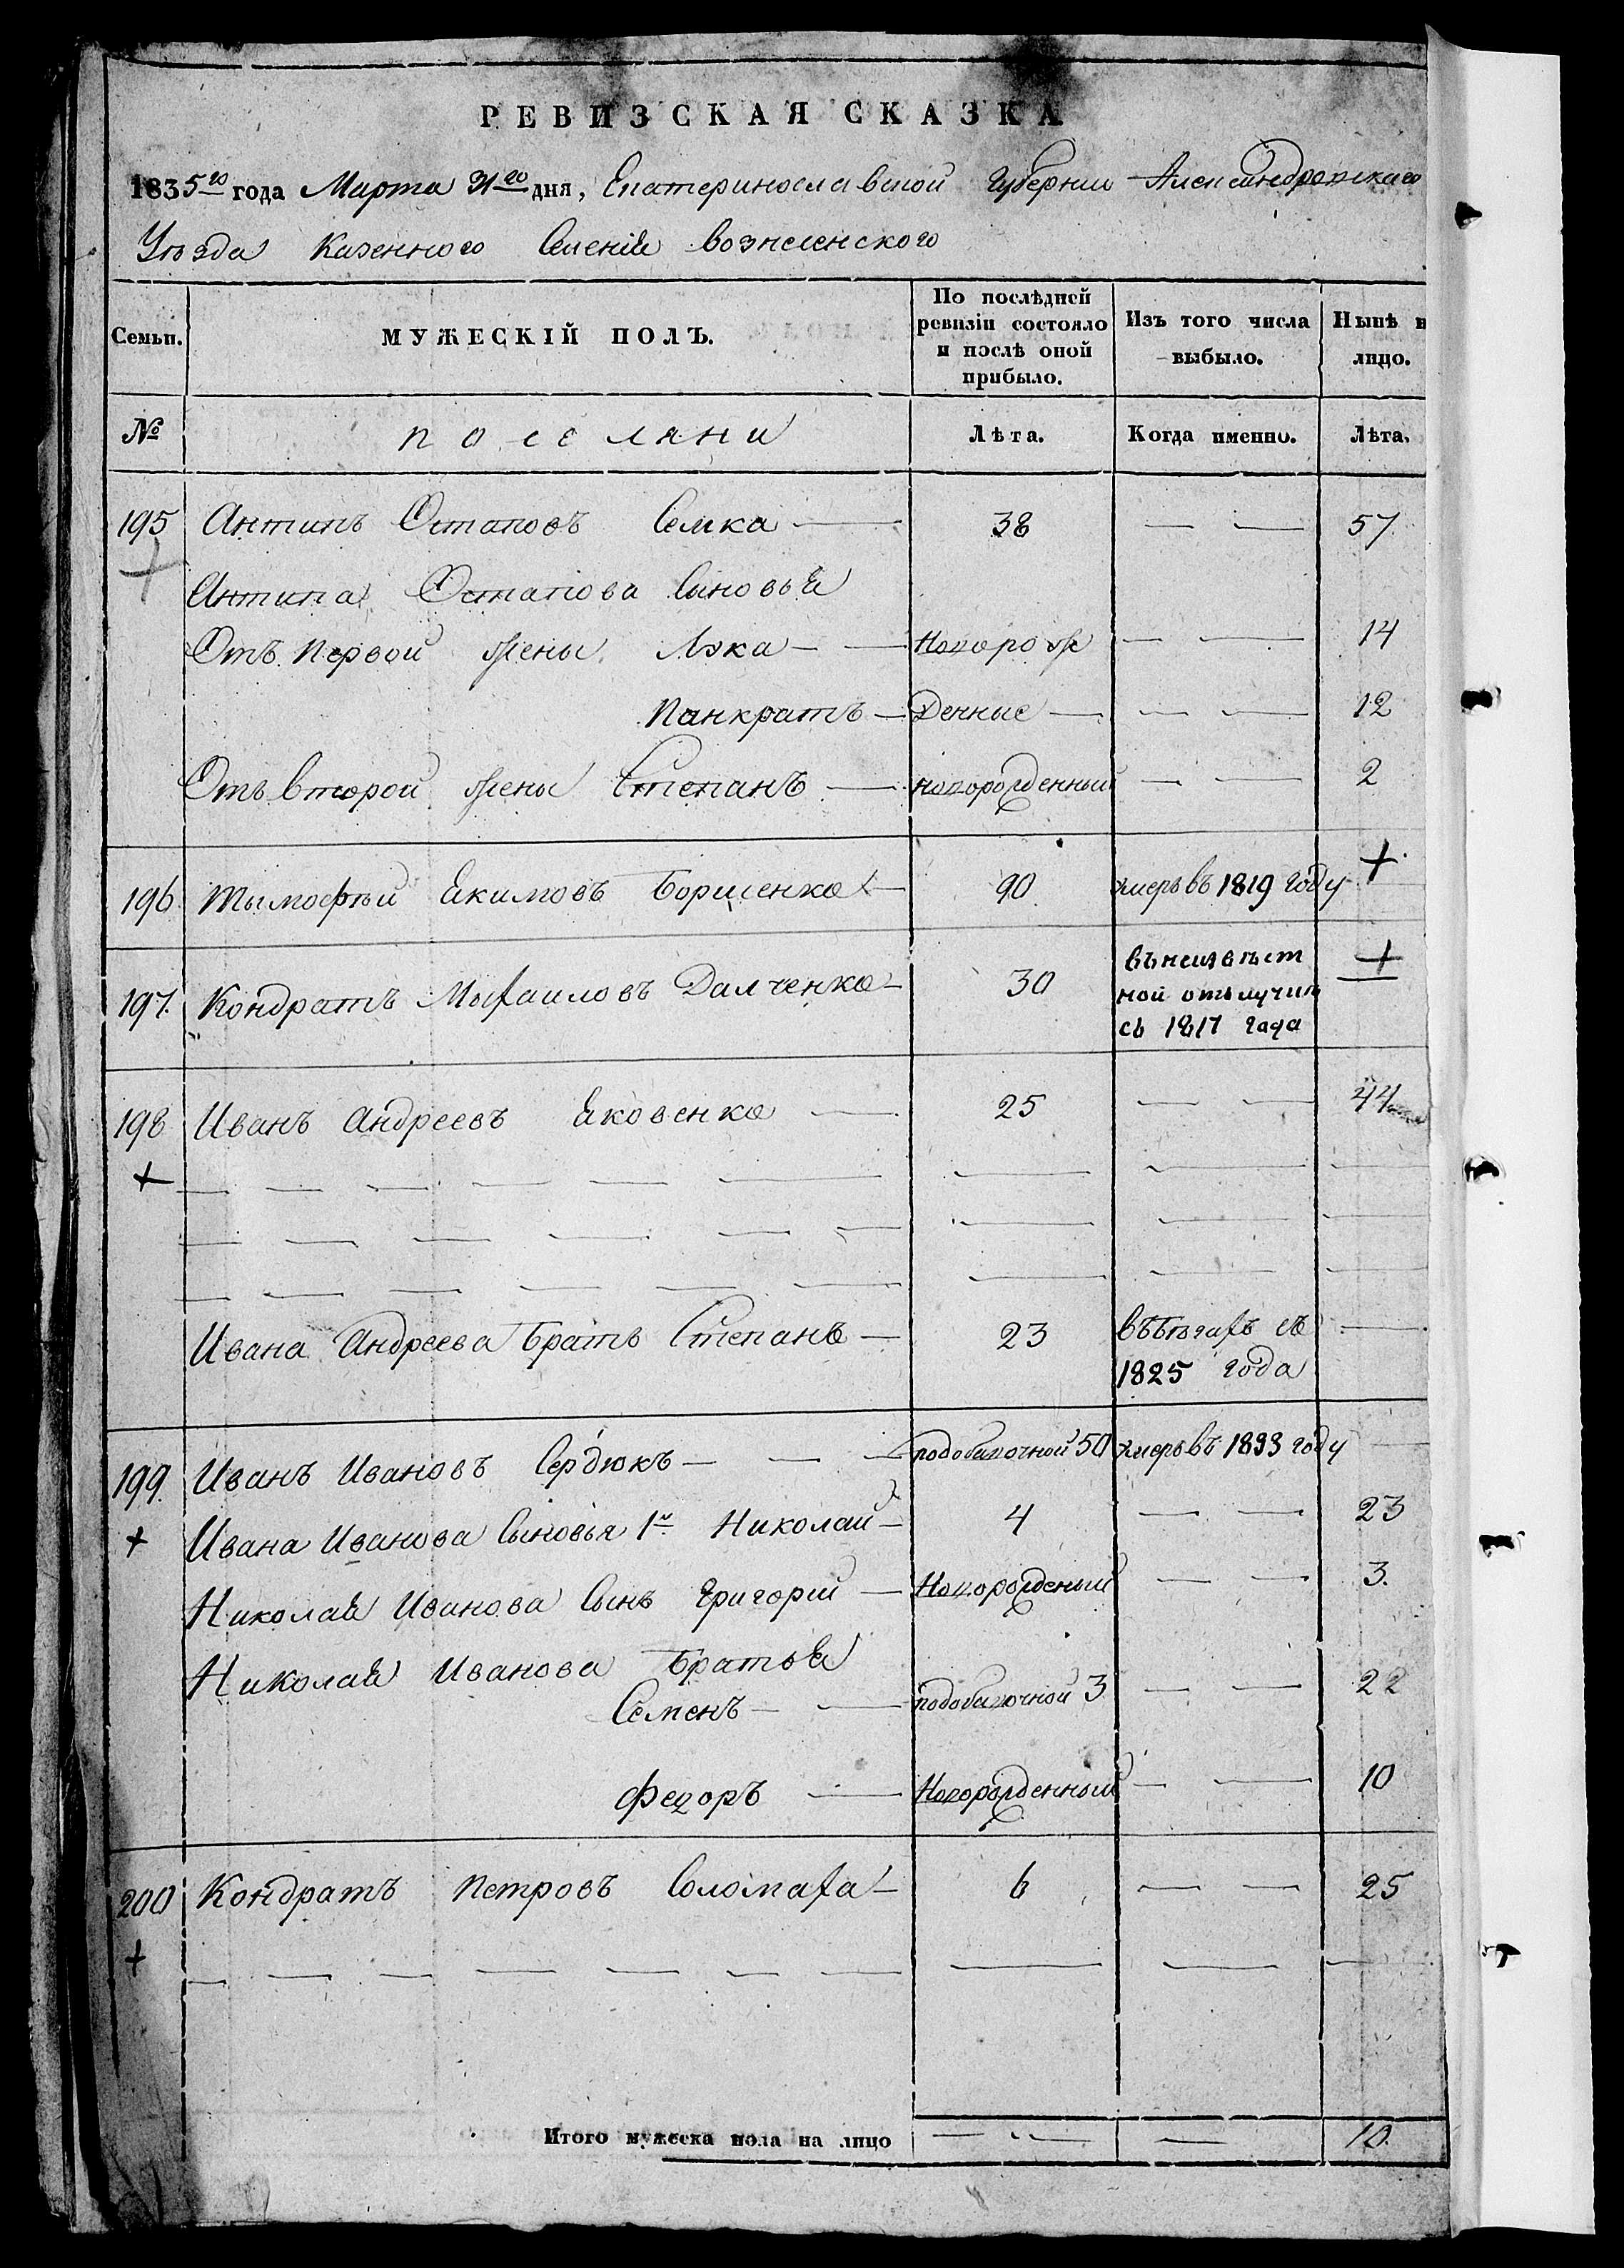 РЕВИЗСКАЯ СКАЗКА
1835го года Марта 31го дня, Екатеринославской Губернии Александровскаго
Уѣзда Казенного Селенія Вознесенского
Семьи. МУЖЕСКІЙ ПОЛЪ. По послѣдней ревизіи состояло и послѣ оной прибыло. Изъ того числа выбыло. Нынѣ в лицо.
№ поселяни Лѣта. Когда именно. Лѣта.
195 Антипъ Остаповъ Семка — 38 — — 57
Антипа Остапова Сыновья
Отъ Первой жены — — Новорож — — 14
Панкратъ — Денные — — — 12
Отъ Второй жены Степанъ — новорожденный — — 2
196 Тымофѣй Екимовъ Борисенко — 90 умеръ въ 1819 году +
197. Кондратъ Мыхаиловъ Далченко — 30 въ неизвѣст
ной отълучки
съ 1817 года +
198 Иванъ Андреевъ Яковенко — 25 — — 44
+
Ивана Андреева Братъ Степанъ — 23 въ Бѣгахъ съ —
1825 года
199. Иванъ Ивановъ Сердюкъ — — — 50 умеръ въ 1833 году —
+ Ивана Иванова Сыновья 1й Николай — 4 — — 23
Николая Иванова Сынъ Григорій — Новорожденый — — 3.
Николая Иванова Братья
Семенъ — — 3 — — 22
Федоръ — Новорожденный — — 10
200 Кондратъ Петровъ Соломаха — 6 — — 25
+
Итого мужеска пола на лицо — — — 10.